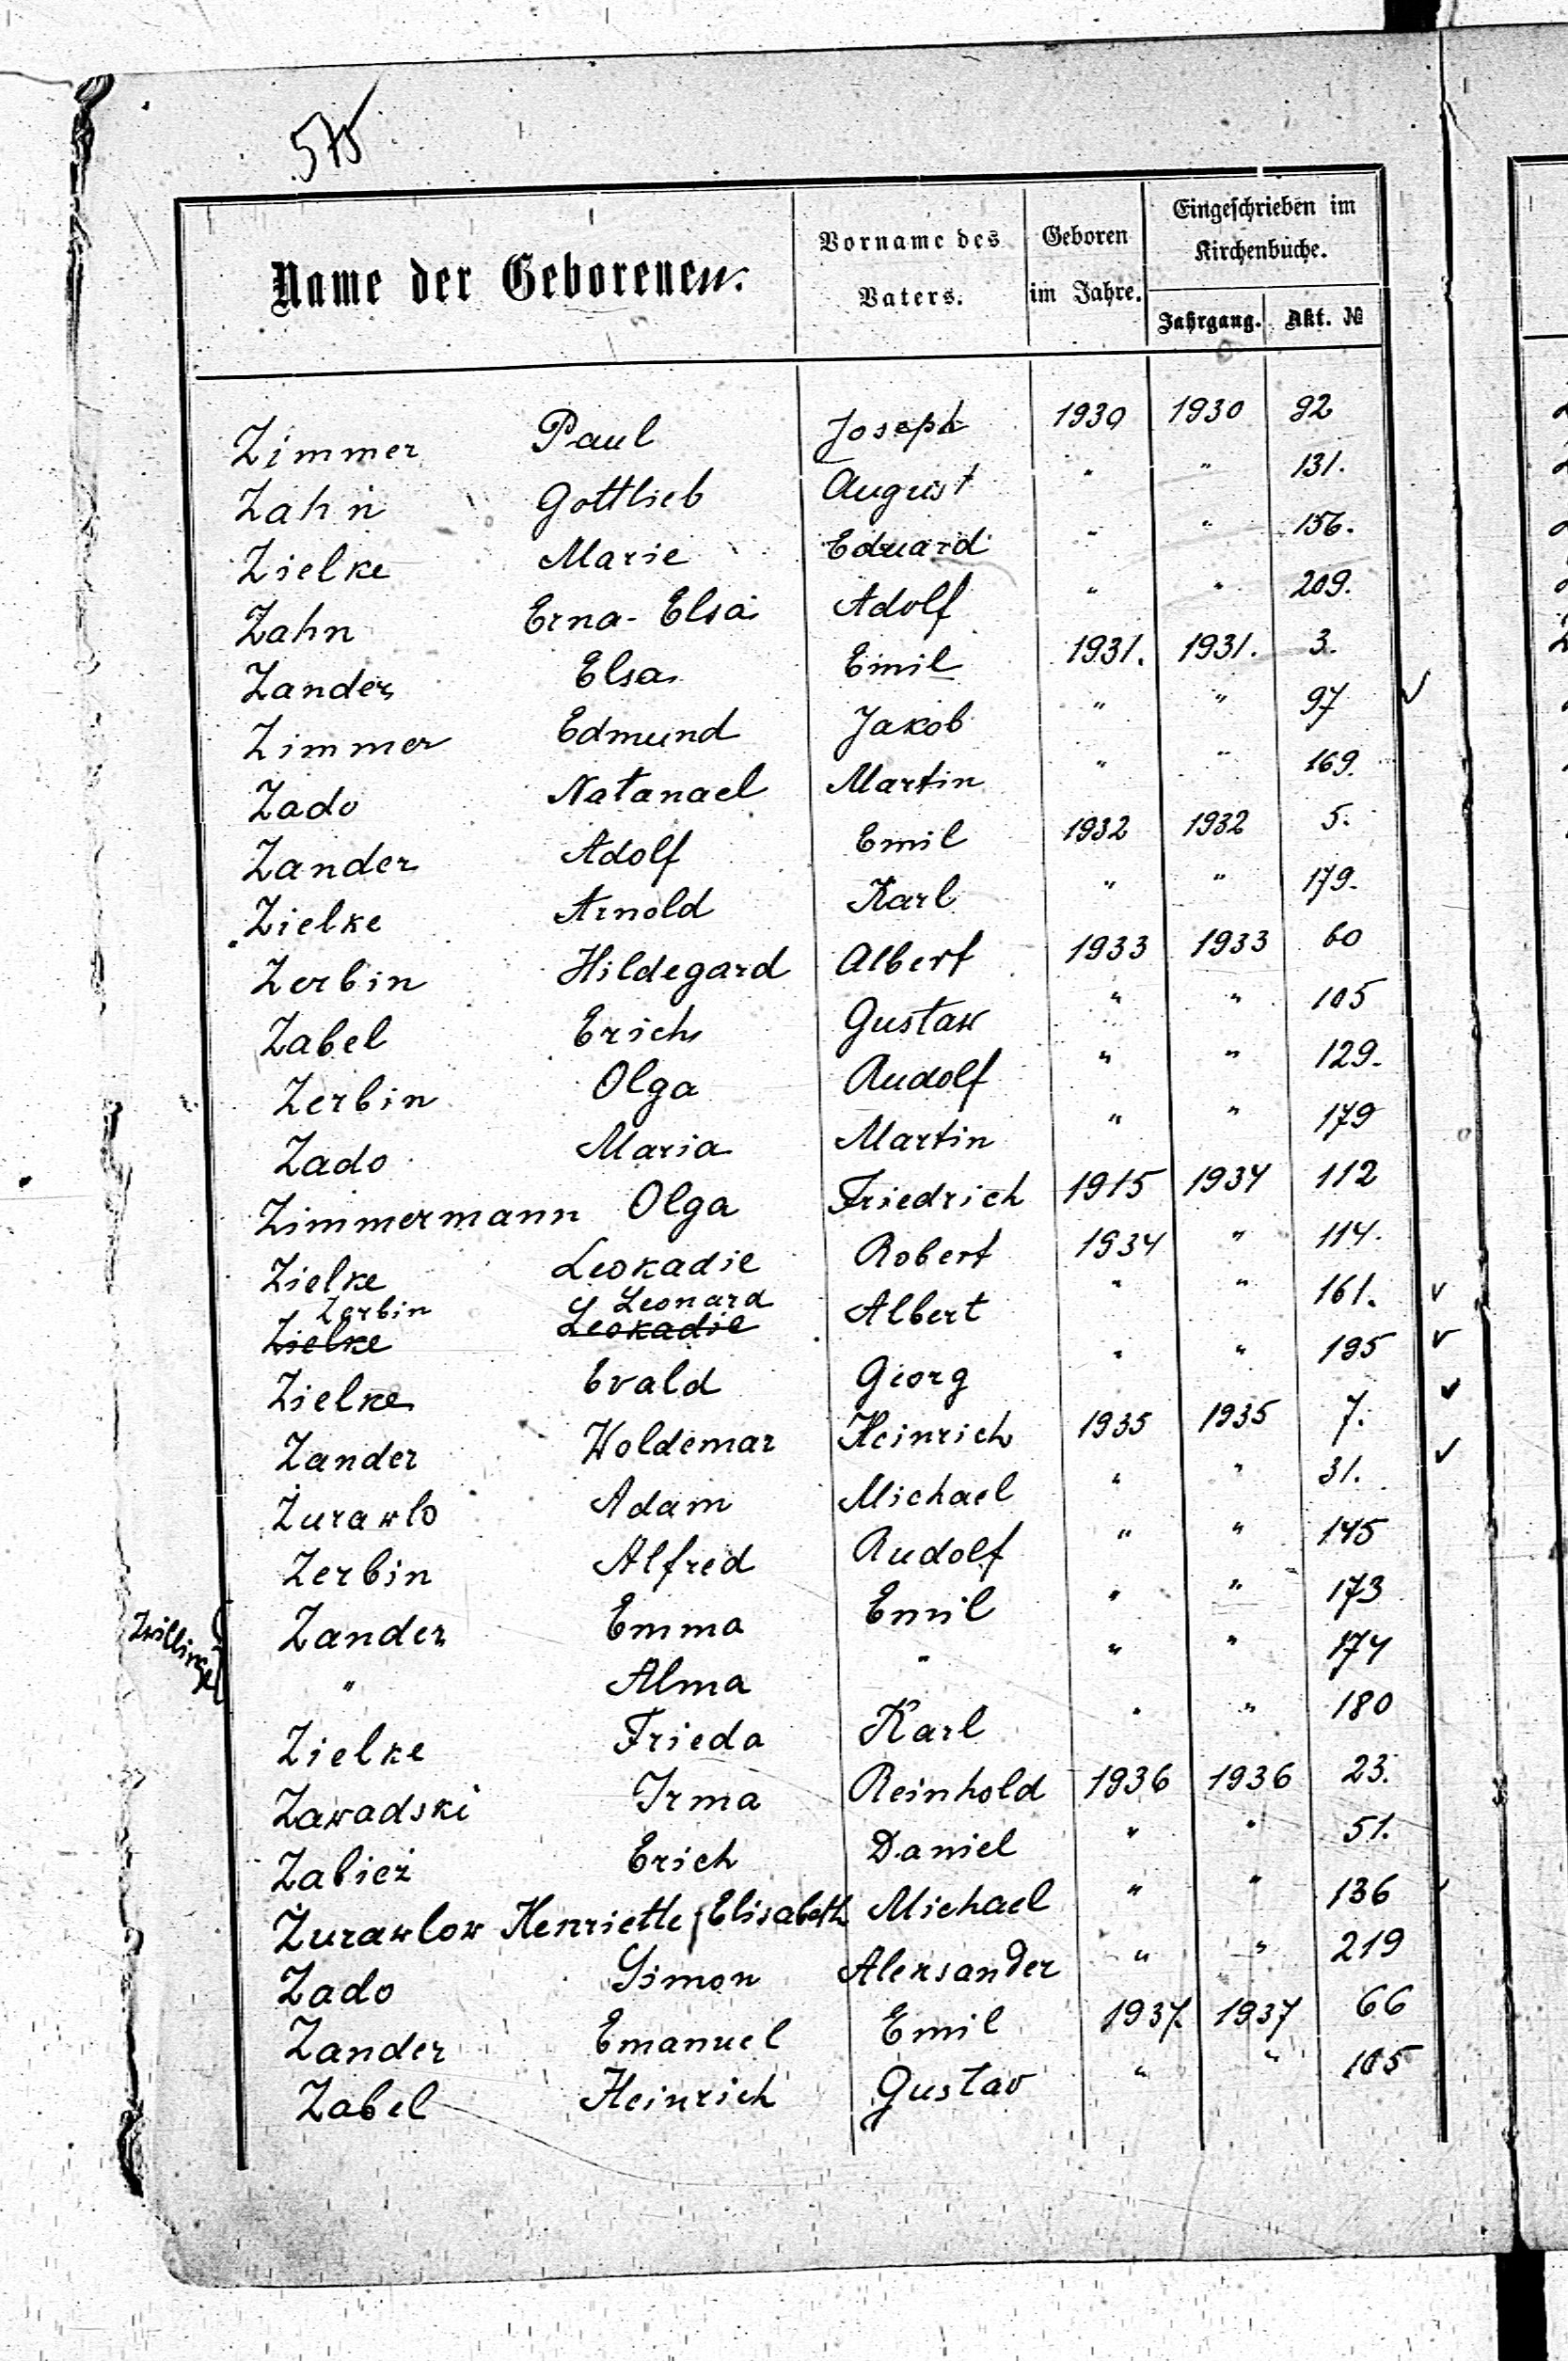 575
Name der Geborenen.
Vorname des Vaters.
Geboren im Jahre.
Eingeschrieben im Kirchenbuche.
Jahrgang. Akt. №
Zimmer Paul Joseph 1930 1930 92
Zahn Gottlieb August " " 131.
Zielke Marie Eduard " " 156.
Zahn Erna-Elsa Adolf " " 209.
Zander Elsa Emil 1931. 1931. 3.
Zimmer Edmund Jakob " " 97 ✓
Zado Natanael Martin " " 169.
Zander Adolf Emil 1932 1932 5.
Zielke Arnold Karl " " 179.
Zerbin Hildegard Albert 1933 1933 60
Zabel Erich Gustaw " " 105
Zerbin Olga Rudolf " " 129.
Zado Maria Martin " " 179
Zimmermann Olga Friedrich 1915 1934 112
Zielke Leokadie Robert 1934 " 114.
Zerbin Leonard
Zielke Leokadie Albert " " 161. ✓
Zielke Evald Georg " " 195 ✓
Zander Woldemar Heinrich 1935 1935 7. ✓
Żurawlo Adam Michael " " 31. ✓
Zerbin Alfred Rudolf " " 145
Zwillinge
Zander Emma Emil " " 173
" Alma " " " 174
Zielke Frieda Karl " " 180
Zawadski Irma Reinhold 1936 1936 23.
Zabież Erich Daniel " " 51.
Żurawlow Henriette Elisabeth Michael " " 136
Zado Simon Aleksander " " 219
Zander Emanuel Emil 1937. 1937 66
Zabel Heinrich Gustav " " 105